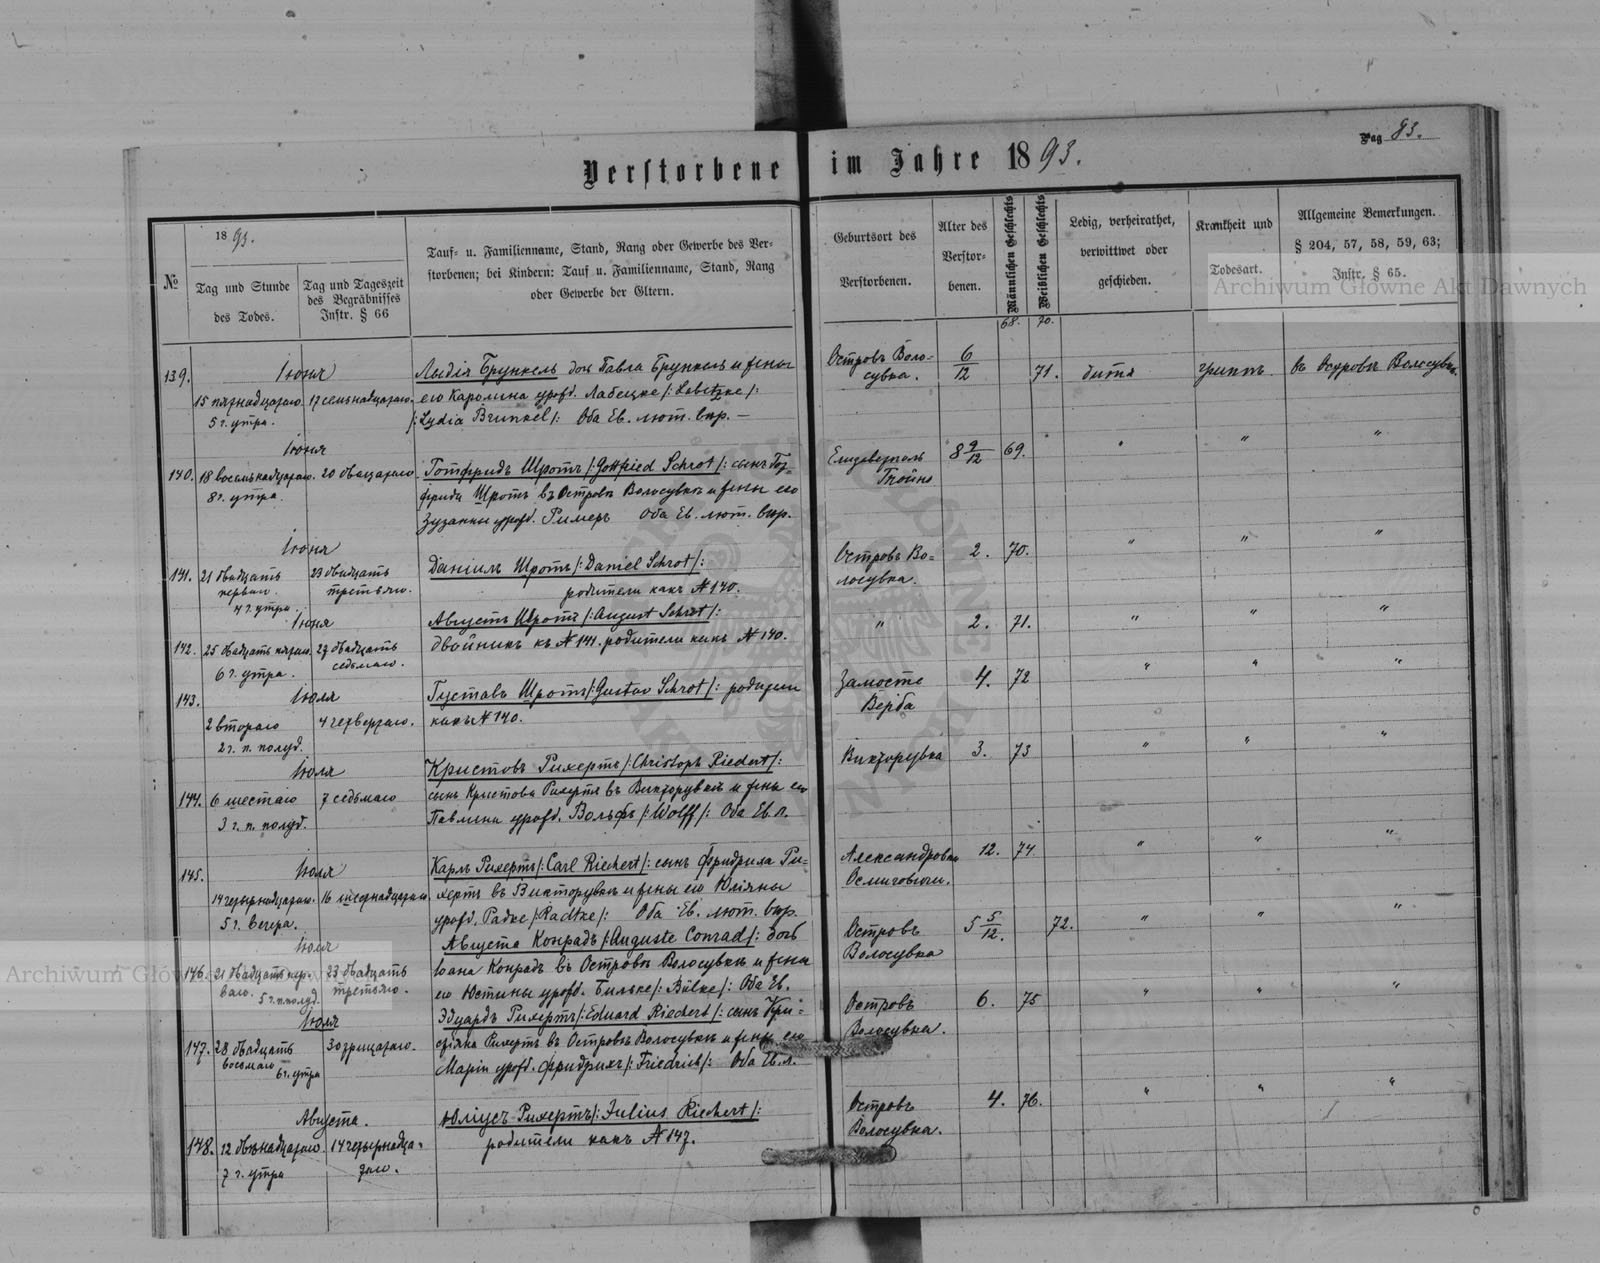 Pag 83.
Verstorbene im Jahre 1893.
№
1893.
Tag und Stunde
des Todes.
Tag und Tageszeit
des Begräbnisses
Instr. § 66
Tauf- u. Familienname, Stand, Rang oder Gewerbe des Ver-
storbenen; bei Kindern: Tauf u. Familienname, Stand, Rang
oder Gewerbe der Eltern.
Geburtsort des
Verstorbenen.
Alter des
Verstor-
benen.
Männlichen Geschlechts
Weiblichen Geschlechts
Ledig, verheirathet,
verwittwet oder
geschieden.
Krankheit und
Todesart.
Allgemeine Bemerkungen.
§ 204, 57, 58, 59, 63;
Instr. § 65.
Archiwum Główne Akt Dawnych
68. 70.
139.
Іюня
15 пятнадцатаго
5 г. утра.
17 семьнадцатаго.
Лидія Брункель доч Павла Брункель и жены
его Каролина урожд. Лабецке /: Lobetzke /:
/: Lydia Brunkel /: Оба Ев. лют. вѣр. —
Островъ Воло-
сувка.
6/12
71.
дитя
гриппъ
въ Островѣ Волосувкѣ.
140.
Іюня
18 восемьнадцатаго.
8 г. утра.
20 двацатаго
Готфридъ Шротъ /: Gottfried Schrot /: сынъ Гот-
фрида Шротъ въ Островѣ Волосувкѣ и жены его
Зузанны урожд. Ример Оба Ев. лют. вѣр.
Елизаветполь
8 9/12
69.
" " "
141.
Іюня
21 двадцать
первый
4 г. утра
23 двадцать
третьяго.
Даніилъ Шротъ /: Daniel Schrot /:
родители какъ № 140.
Островъ Во-
лосувка.
2.
70.
" " "
142.
Іюня
25 двадцать пятаго
6 г. утра.
27 двадцать
седьмаго.
Августъ Шротъ /: August Schrot /:
двойникъ къ № 141. родители какъ № 140.
"
2.
71.
" " "
143.
Іюля
2 втораго
2 г. п. полуд.
4 четвертаго.
Густавъ Шротъ /: Gustav Schrot /: родители
какъ № 140.
Замосте
Верба
4.
72
" " "
144.
Іюля
6 шестаго
3 г. п. полуд.
7 седьмаго
Кристовъ Рихертъ /: Christoph Riedert /:
сынъ Кристова Рихертъ въ Викторувкѣ и жены его
Павлины урожд. Вольфъ /: Wolff /: Оба Ев. л.
Викторувка
3.
73
" " "
145.
Іюля
14 четырнадцатаго.
5 г. вечера.
16 шестнадцатаго.
Карлъ Рихертъ /: Carl Riechert /: сынъ Фридриха Ри-
хертъ въ Викторувкѣ и жены его Юліяны
урожд. Радке /: Radtke /: Оба Ев. лют. вѣр.
Александровка
12.
74
" " "
146.
Іюля
21 двадцать пер-
ваго. 5 г. п. полуд.
23 двадцать
третьяго.
Августа Конрадъ /: Auguste Conrad /: дочь
Іоана Конрадъ въ Островѣ Волосувкѣ и жены
его Юстины урожд. Бильке /: Bülke /: Оба Ев.
Островъ
Волосувка
5 5/12.
72.
" " "
147.
Іюля
28 двадцать
восьмаго 6 г. утра
30 трицатаго.
Эдуардъ Рихертъ /: Eduard Riechert /: сынъ Кри-
стіяна Рихертъ въ Островѣ Волосувкѣ и жены его
Маріи урожд. Фридрихъ /: Friedrich /: Оба Ев. л.
Островъ
Волосувка.
6.
75
" " "
148.
Августа.
12 двѣнадцатаго
7 г. утра
14 четырнадца-
таго.
Юліусъ Рихертъ /: Julius Riechert /:
родители какъ № 147.
Островъ
Волосувка.
4.
76.
" " "
Archiwum Główne Akt Dawnych